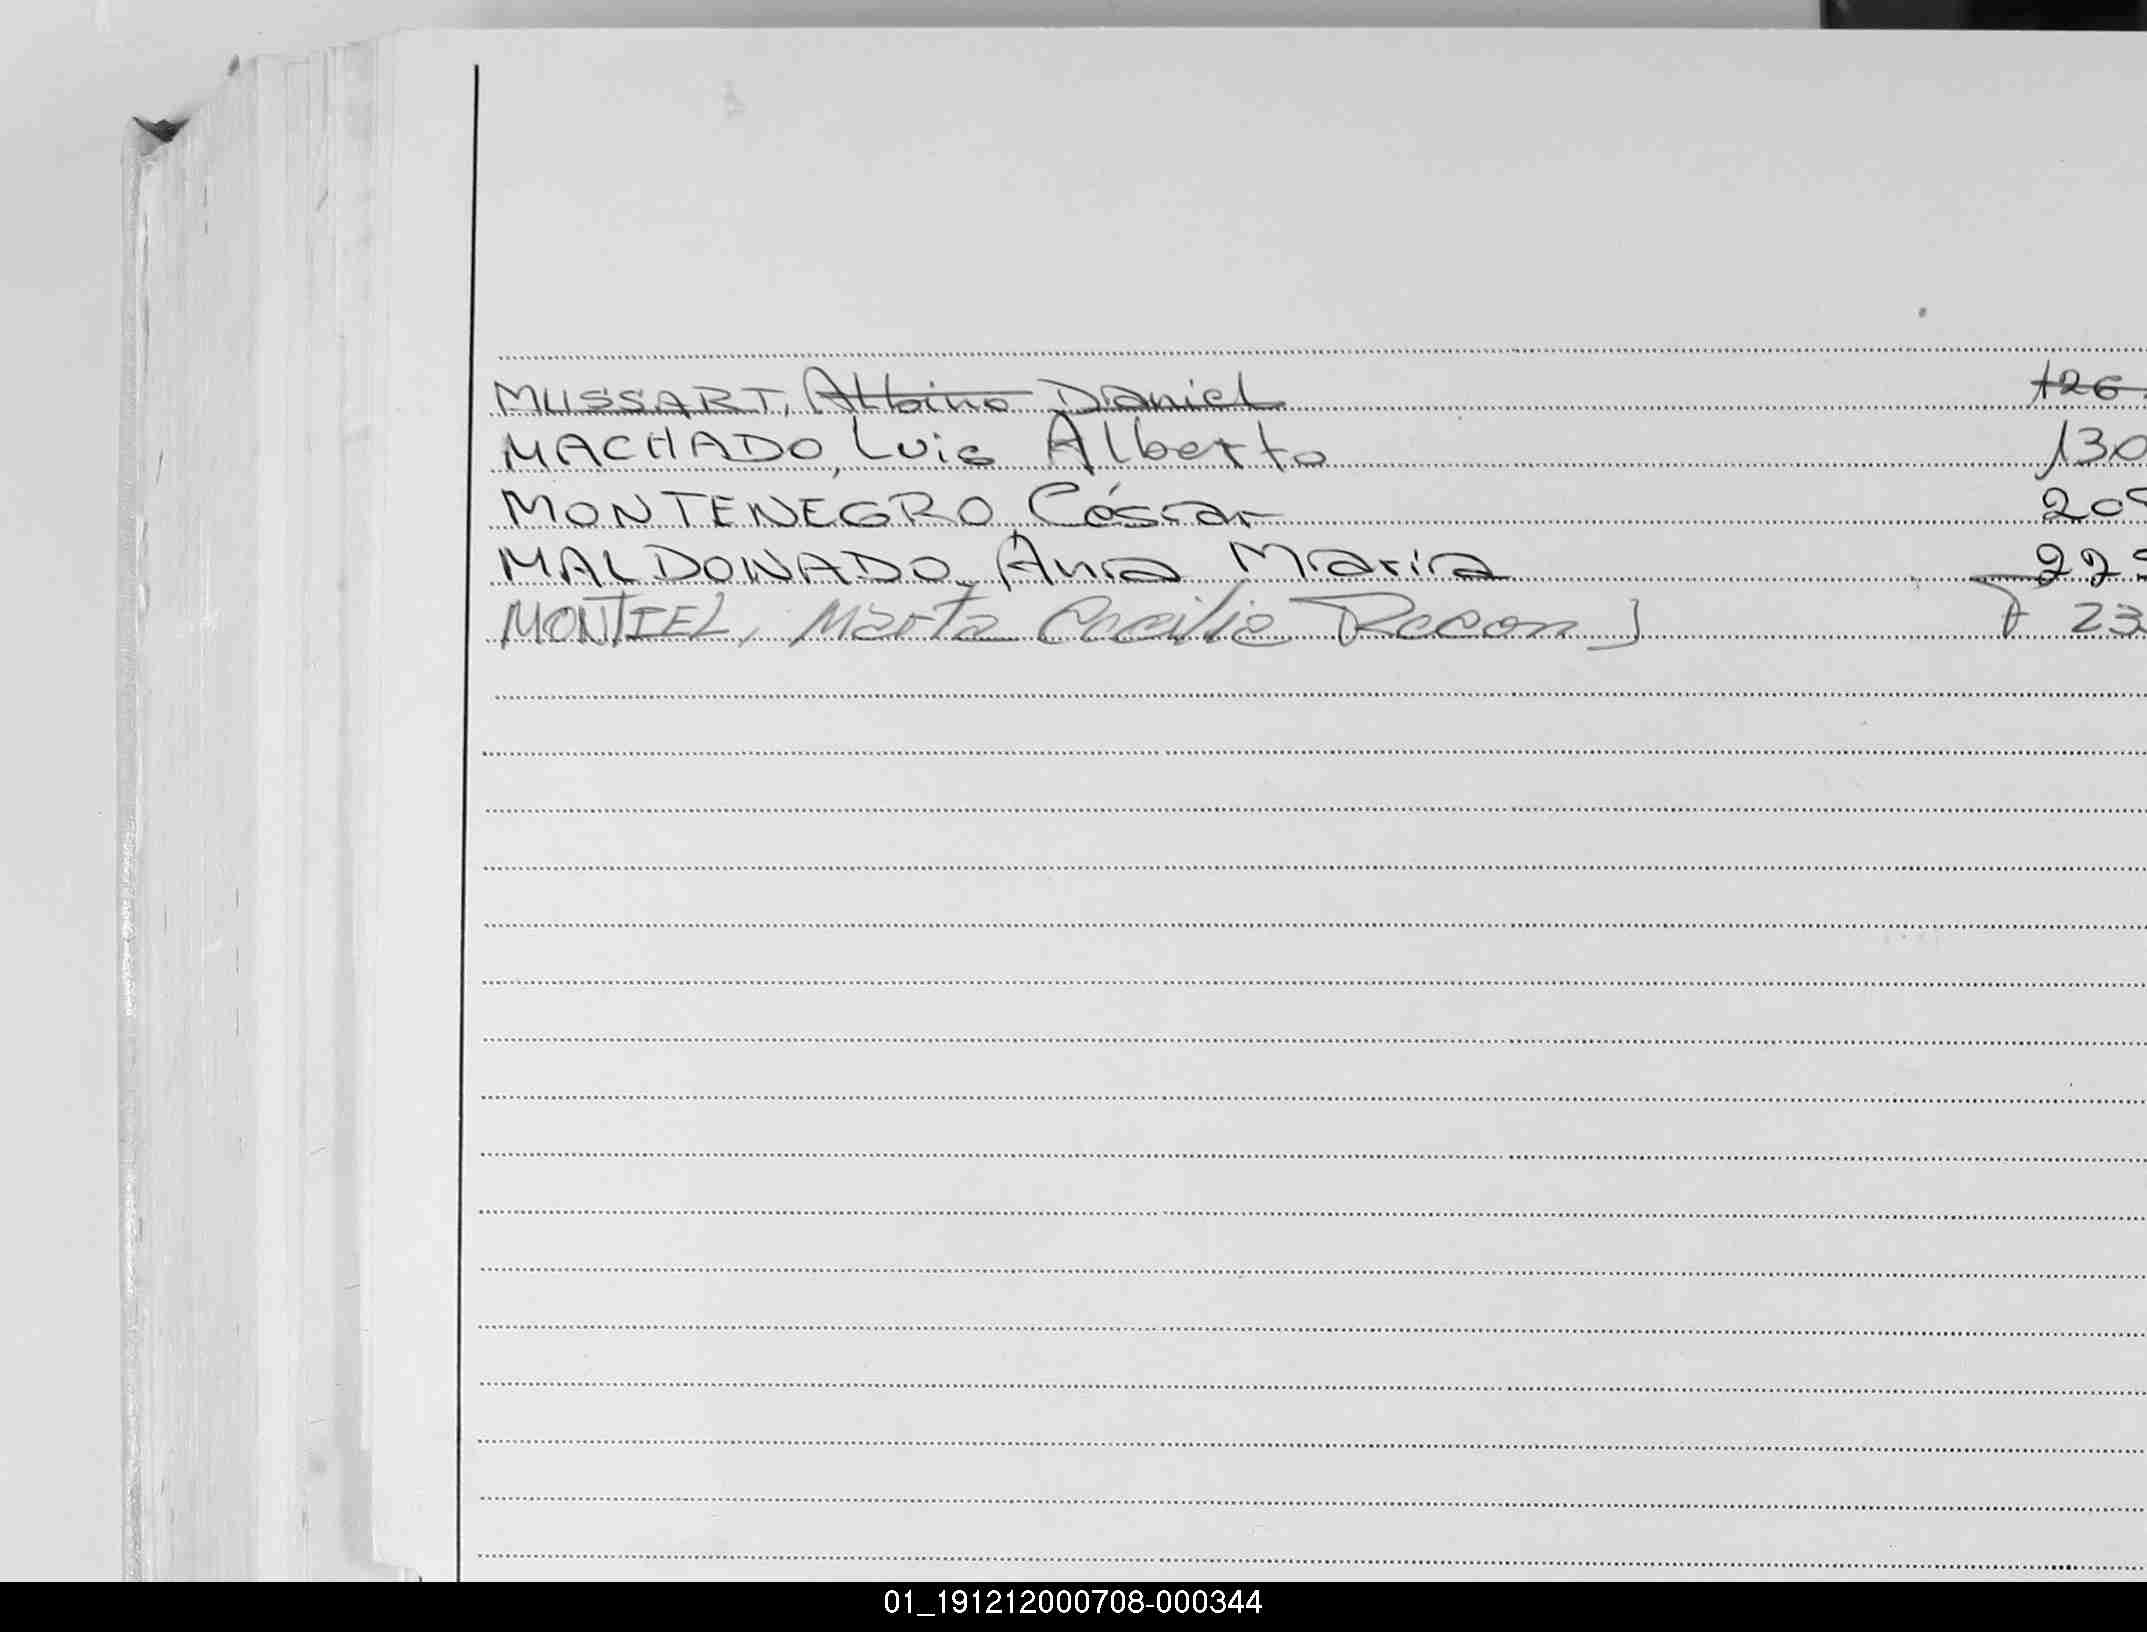 MUSSART, Albino Daniel 126
MACHADO, Luis Alberto 130
MONTENEGRO, César 20
MALDONADO, Ana Maria 22
MONTIEL, Marta Cecilia 23
01_191212000708-000344